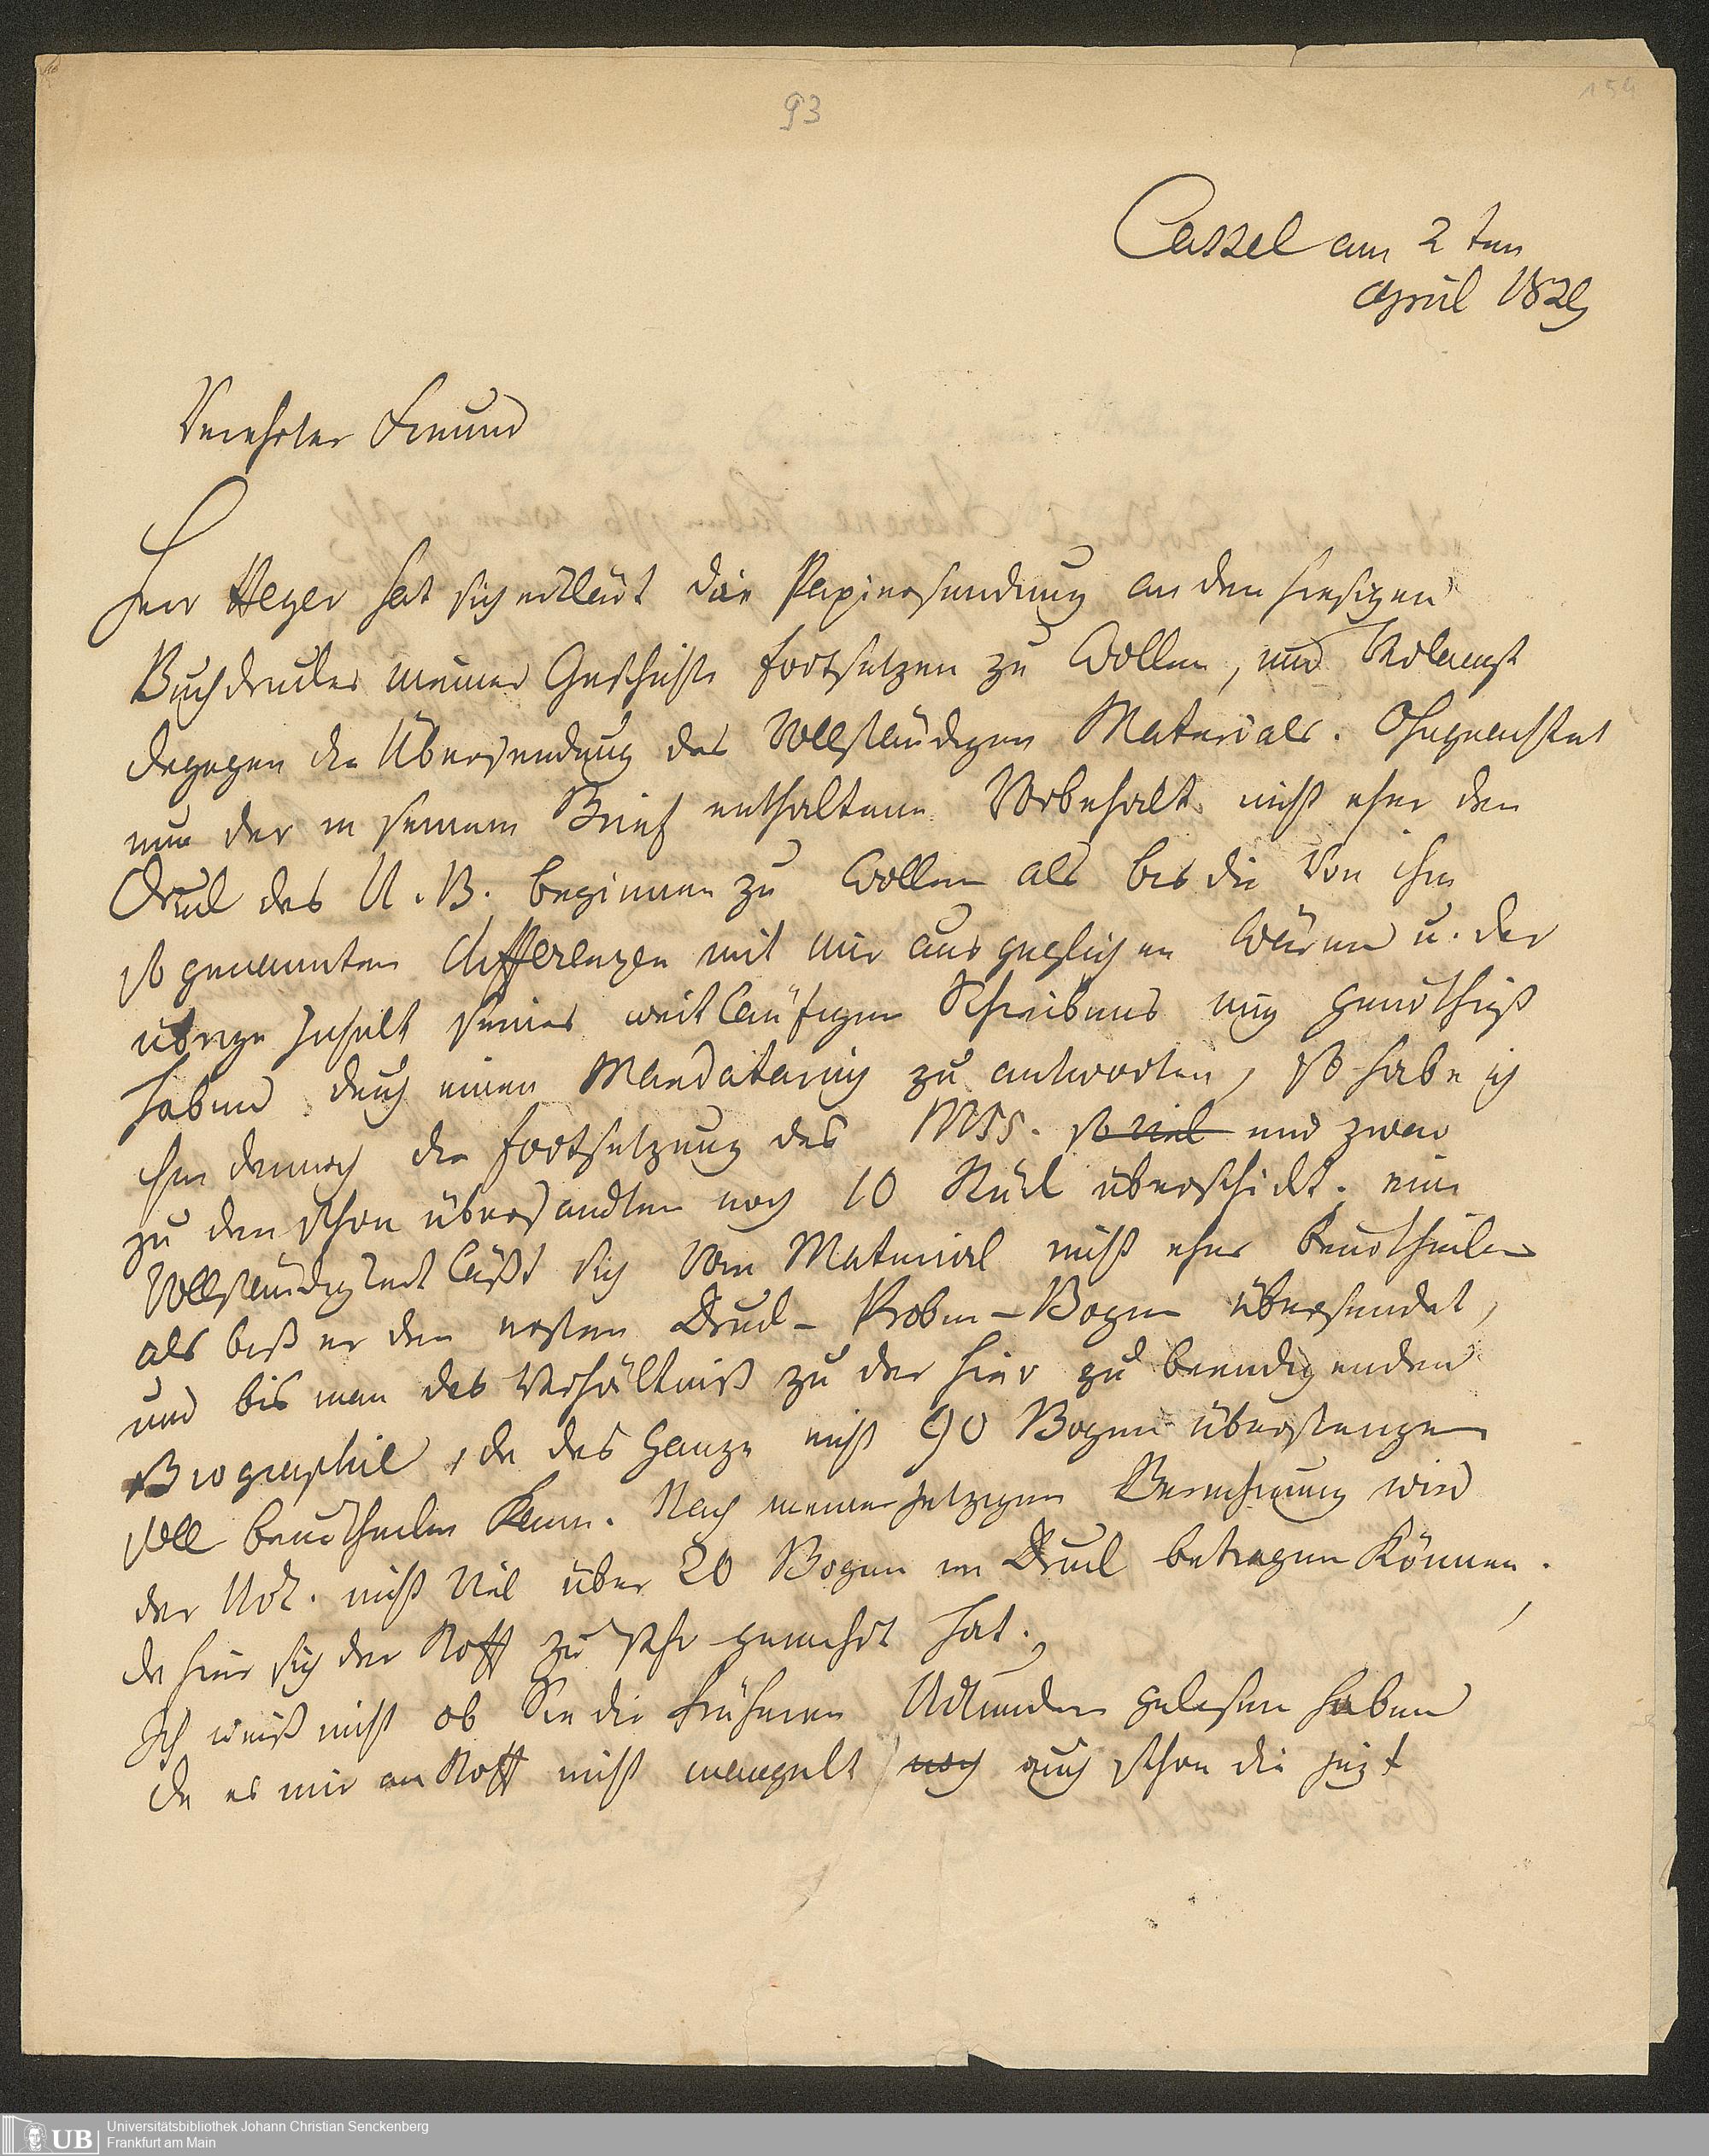 93
154
Cassel am 2 ten
April 1829
Verehrter Freund
Herr Heyer hat sich erklärt die Papiersendung an den hiesigen
Buchdrucker meiner Geschichte fortsetzen zu wollen, und verlangt
dagegen die Übersendung des vollständigen Materials. Ohngeachtet
nun der in seinem Brief enthaltene Vorbehalt nicht eher den
Druck des U. B. beginnen zu wollen als bis die von ihm
so genannten differenzen mit mir ausgeglichen wären u. der
übrige Inhalt seines weitläufigen Schreibens mich genöthigt
haben durch einen Mandatarius zu antworten, so habe ich
ihm dennoch die Fortsetzung des MSS. so viel und zwar
zu den schon übersandten noch 10 Stück überschickt. eine
Vollständigkeit läßt sich vom Material nicht eher beurtheilen
als biß er den ersten Druck-Proben-Bogen übersendet,
und bis man das Verhältniß zu der hier zu beendigenden
Biographie, da das Ganze nicht 90 Bogen übersteigen
soll beurtheilen kann. Nach meiner jetzigen Berechnung wird
der Urk. nicht viel über 20 Bogen im Druck betragen können.
da hier sich der Stoff zu sehr gemehrt hat.
Ich weiß nicht ob Sie die früheren Urkunden gelesen haben
da es mir an Stoff nicht mangelt noch auch schon die jezt
UB
Universitätsbibliothek Johann Christian Senckenberg
Frankfurt am Main